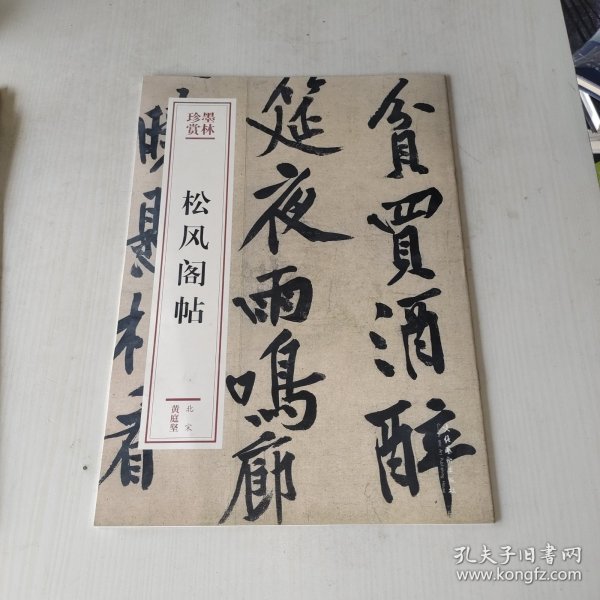 墨林
珍赏
松风阁帖
北宋
黄庭坚
贫買酒醉
筵夜雨鳴廊
曉懸相看
孔夫子旧书网
www.kongfz.com